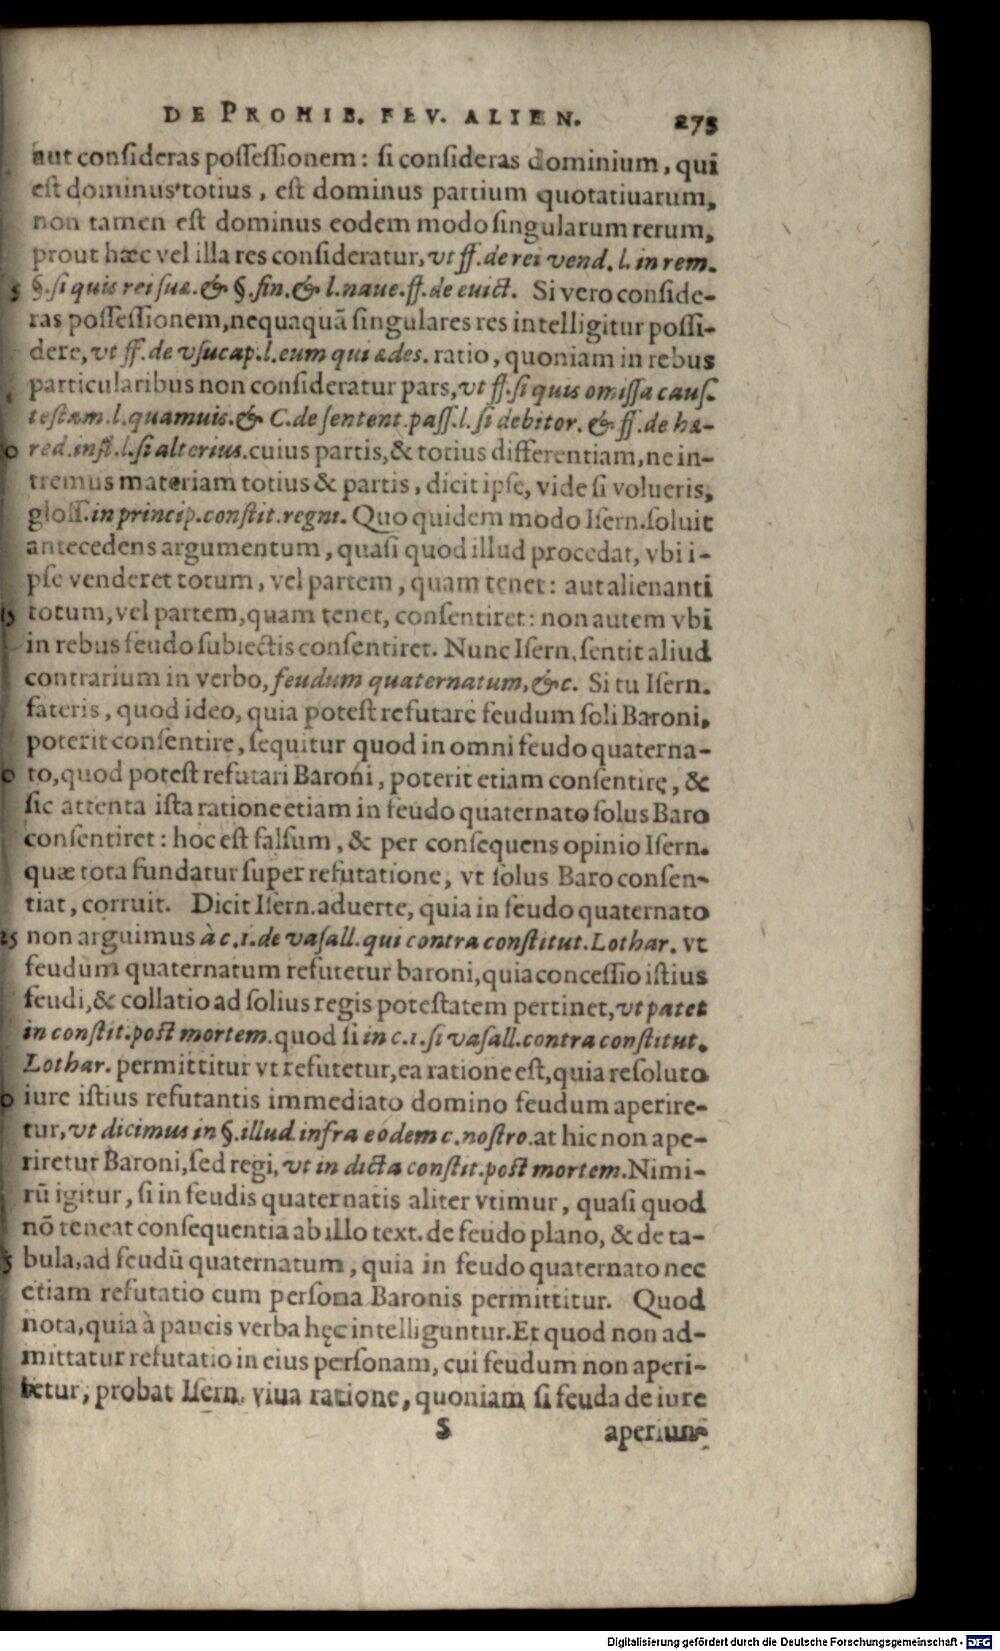 DE PROHIB. FEV. ALIEN. 275
aut consideras possessionem: si consideras dominium, qui
est dominus totius, est dominus partium quotatiuarum,
non tamen est dominus eodem modo singularum rerum,
prout hæc vel illa res consideratur, vt ff. de rei vend. l. in rem.
5 §. si quis rei suæ. & §. fin. & l. naue. ff. de euict. Si vero conside-
ras possessionem, nequaquā singulares res intelligitur possi-
dere, vt ff. de vsucap. l. eum qui ædes. ratio, quoniam in rebus
particularibus non consideratur pars, vt ff. si quis omissa caus.
testam. l. quamuis. & C. de sentent. pass. l. si debitor. & ff. de hæ-
0 red. inst. l. si alterius. cuius partis, & totius differentiam, ne in-
tremus materiam totius & partis, dicit ipse, vide si volueris,
gloss. in princip. constit. regni. Quo quidem modo Isern. soluit
antecedens argumentum, quasi quod illud procedat, vbi i-
pse venderet totum, vel partem, quam tenet: aut alienanti
15 totum, vel partem, quam tenet, consentiret: non autem vbi
in rebus feudo subiectis consentiret. Nunc Isern. sentit aliud
contrarium in verbo, feudum quaternatum, &c. Si tu Isern.
fateris, quod ideo, quia potest refutare feudum soli Baroni,
poterit consentire, sequitur quod in omni feudo quaterna-
0 to, quod potest refutari Baroni, poterit etiam consentire, &
sic attenta ista ratione etiam in feudo quaternato solus Baro
consentiret: hoc est falsum, & per consequens opinio Isern.
quæ tota fundatur super refutatione, vt solus Baro consen-
tiat, corruit. Dicit Isern. aduerte, quia in feudo quaternato
25 non arguimus à c. 1. de vasall. qui contra constitut. Lothar. vt
feudum quaternatum refutetur baroni, quia concessio istius
feudi, & collatio ad solius regis potestatem pertinet, vt patet
in constit. post mortem. quod si in c. 1. si vasall. contra constitut.
Lothar. permittitur vt refutetur, ea ratione est, quia resoluto
0 iure istius refutantis immediato domino feudum aperire-
tur, vt dicimus in §. illud infra eodem c. nostro. at hic non ape-
riretur Baroni, sed regi, vt in dicta constit. post mortem. Nimi-
rū igitur, si in feudis quaternatis aliter vtimur, quasi quod
nō teneat consequentia ab illo text. de feudo plano, & de ta-
5 bula, ad feudū quaternatum, quia in feudo quaternato nec
etiam refutatio cum persona Baronis permittitur. Quod
nota, quia à paucis verba hęc intelliguntur. Et quod non ad-
mittatur refutatio in eius personam, cui feudum non aperi-
tetur, probat Isern. viua ratione, quoniam si feuda de iure
S aperiunt
Digitalisierung gefördert durch die Deutsche Forschungsgemeinschaft - DFG